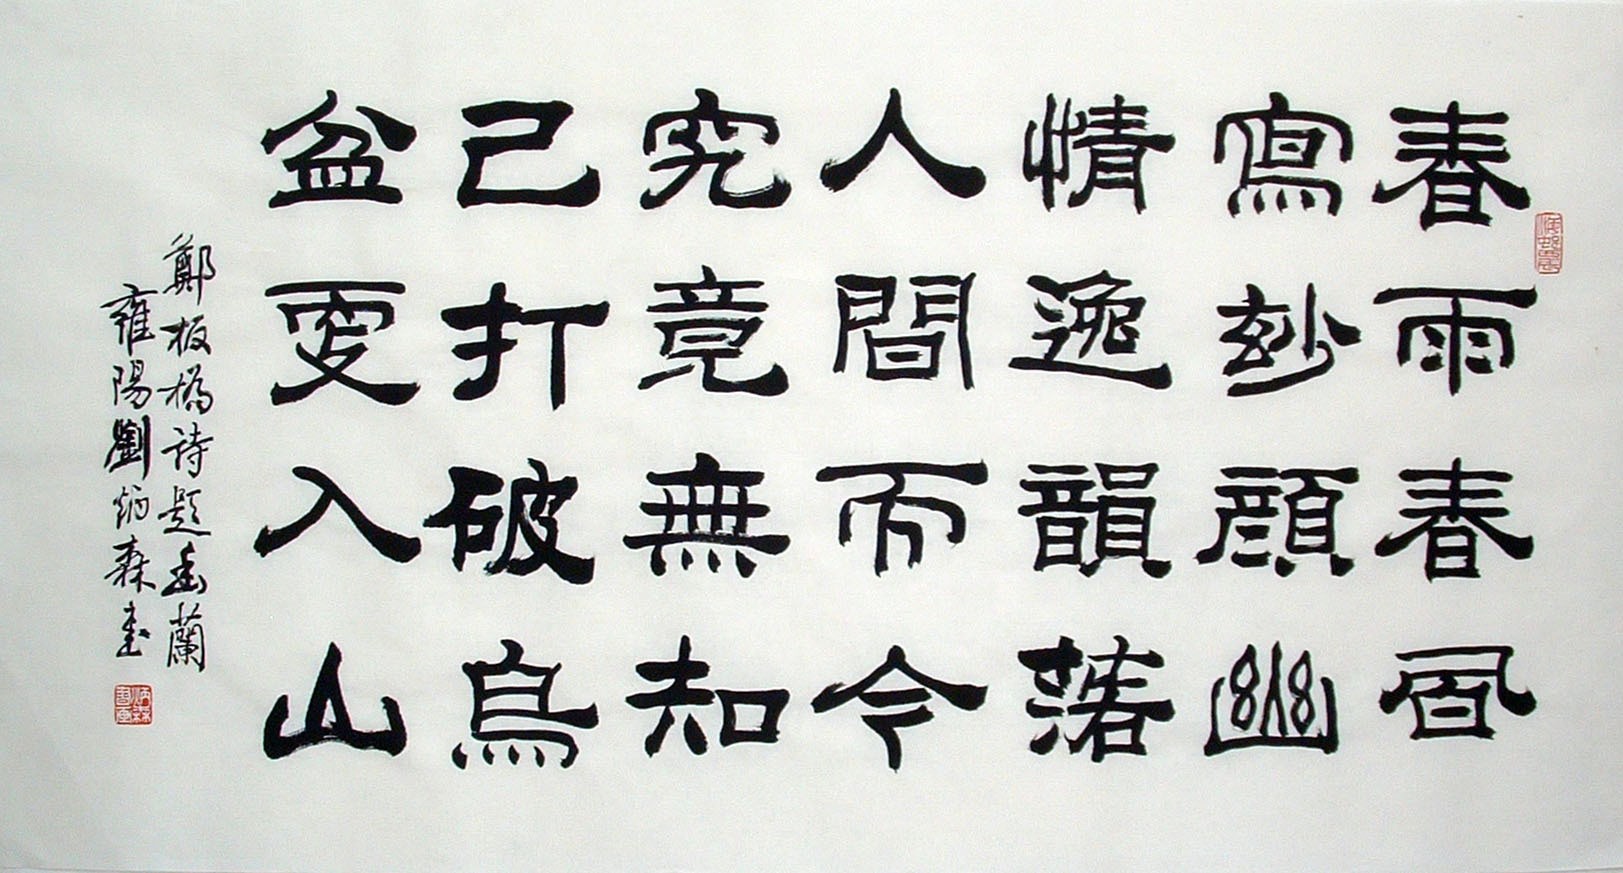 春雨春風
寫玅顏幽
情逸韻落
人間而今
究竟無知
己打破烏
盆更入山
鄭板橋詩題幽蘭
雍陽劉炳森書